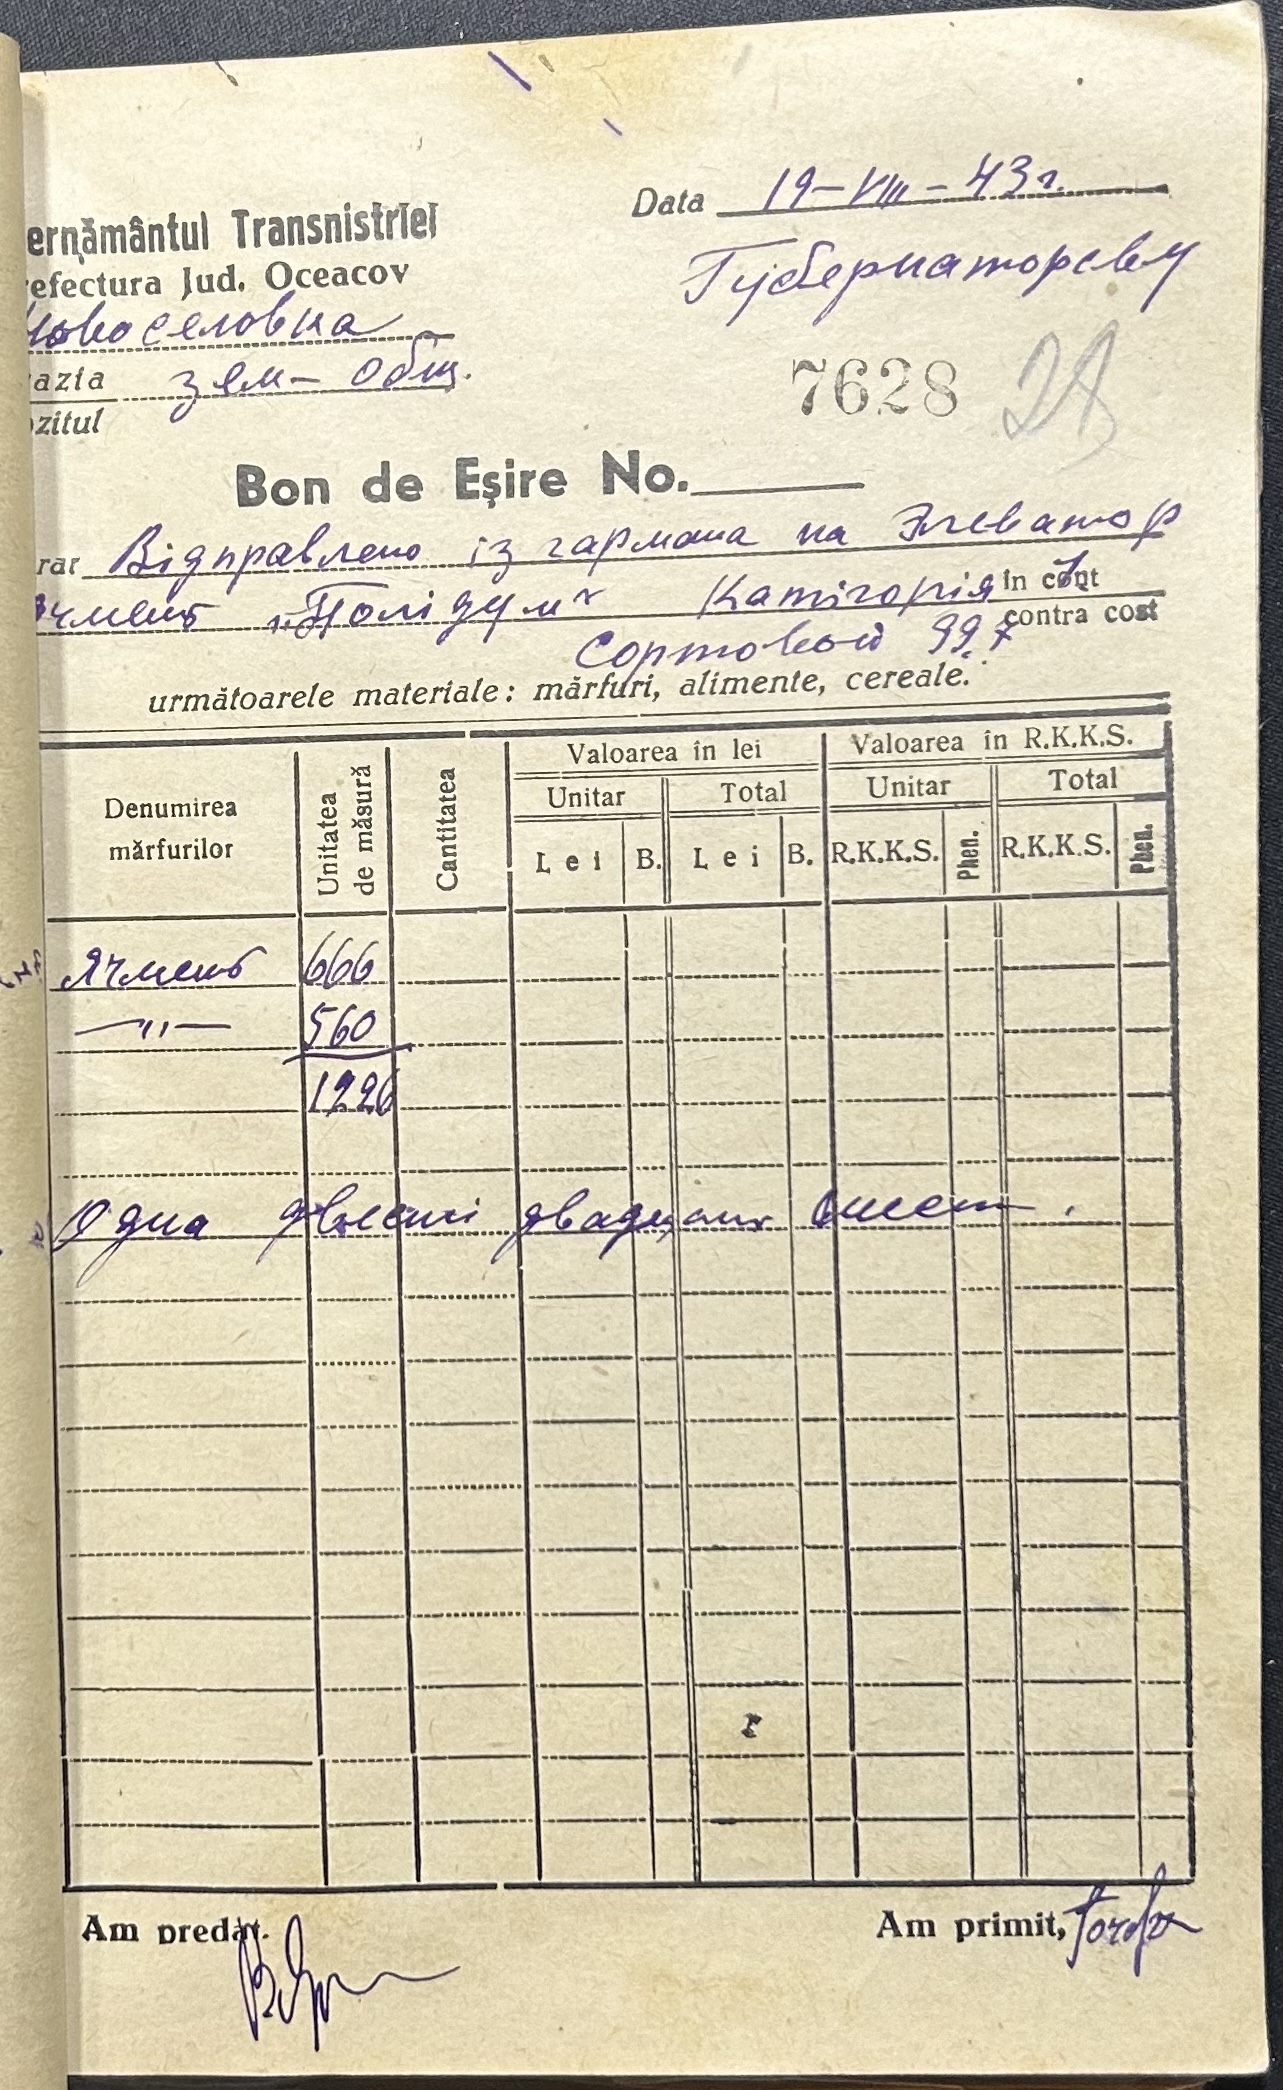 Data 19-VIII-43г.
ernământul Transnistriei
Губернаторсву
efectura Jud. Oceacov
Новоселовка
azia зем- общ.
ozitul
7628
Bon de Eşire No.
rar Відправлено із гармана на Элеватор
ячмень "Полідум" Катігорія 1 în cont
contra cost
Сортовой 99,7
următoarele materiale: mărfuri, alimente, cereale.
Denumirea mărfurilor
Unitatea de măsură
Cantitatea
Valoarea în lei
Valoarea în R.K.K.S.
Unitar Total Unitar Total
Lei B. Lei B. R.K.K.S. Phen. R.K.K.S. Phen.
Ячмень 666
—"— 560
1226
Одна двесті двадцать шест.
Am predat.
Am primit,